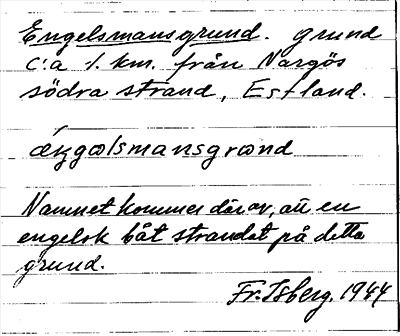 Engelsmansgrund. grund
c:a 1. km. från Nargös
södra strand, Estland.
ǽŋgœlsmansgrœnd
Namnet kommer därav, att en
engelsk båt strandat på detta
grund.
Fr. Isberg. 1944